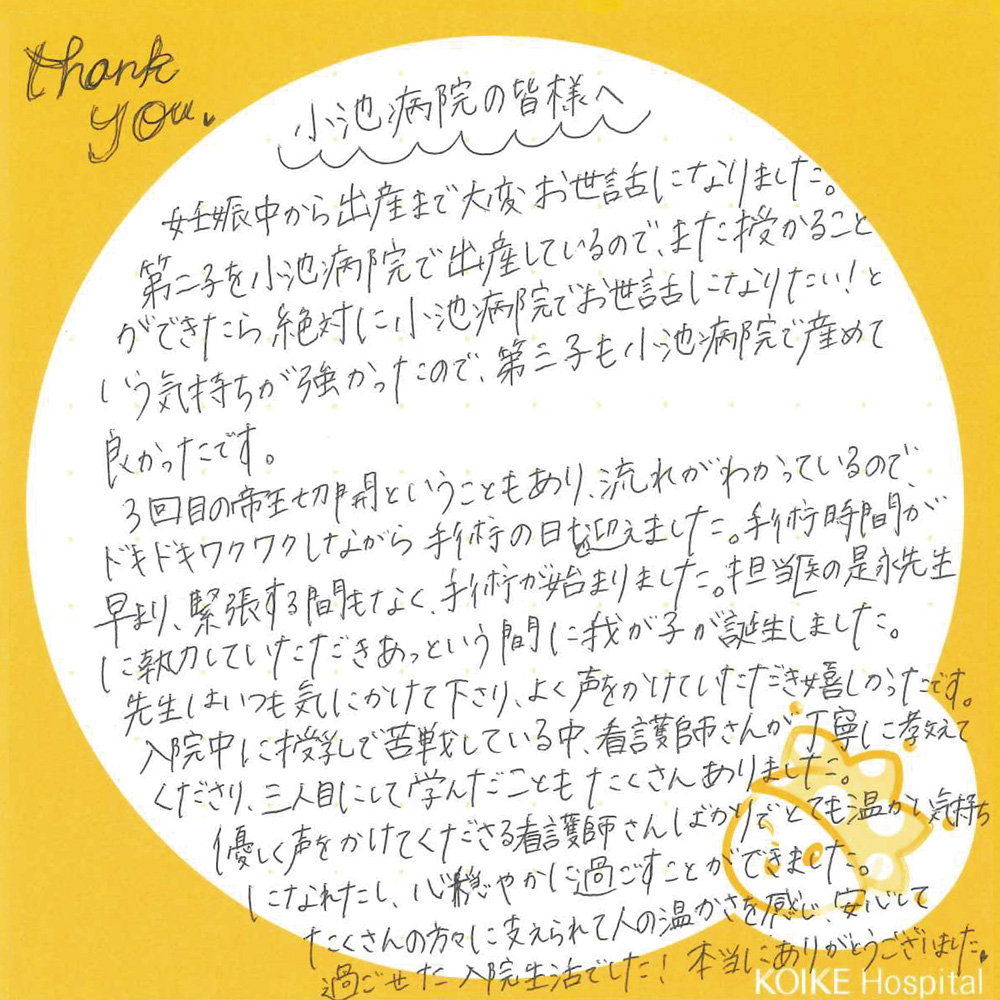 Thank
you
小池病院の皆様へ
妊娠中から出産まで大変お世話になりました。
第二子を小池病院で出産しているので、また授かること
ができたら絶対に小池病院でお世話になりたい!と
いう気持ちが強かったので、第三子も小池病院で産めて
良かったです。
3回目の帝王切開ということもあり、流れがわかっているので、
ドキドキワクワクしながら手術の日を迎えました。手術時間が
早まり、緊張する間もなく、手術が始まりました。担当医の是永先生
に執刀していただきあっという間に我が子が誕生しました。
先生はいつも気にかけて下さり、よく声をかけていただき嬉しかったです。
入院中に授乳で苦戦している中、看護師さんが丁寧に教えて
くださり、三人目にして学んだこともたくさんありました。
優しく声をかけてくださる看護師さんばかりでとても温かい気持ち
になれたし、心穏やかに過ごすことができました。
たくさんの方々に支えられて人の温かさを感じ、安心して
過ごせた入院生活でした!本当にありがとうございました
KOIKE Hospital